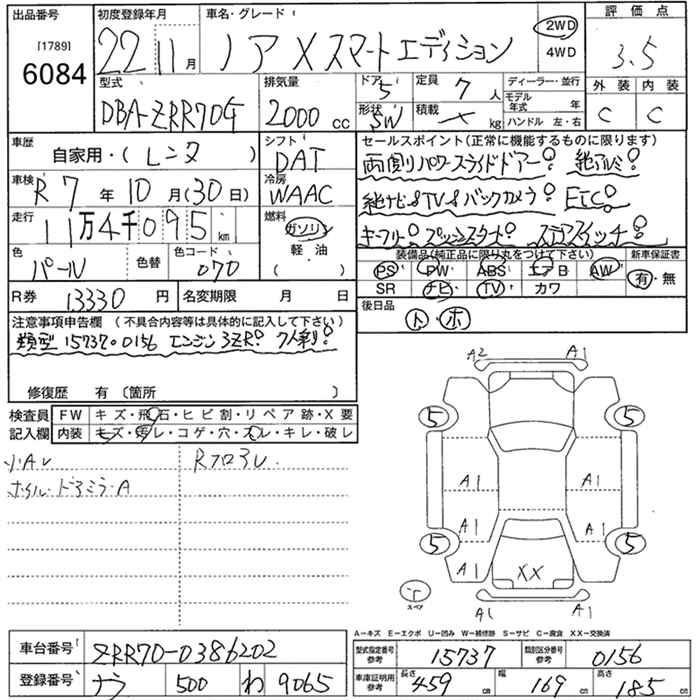 出品番号
[1789]
6084
初度登録年月
22 11月
車名・グレード
ノア X スマートエディション
2WD
4WD
評価点
3.5
外装 内装
C C
型式
DBA-ZRR70G
排気量
2000 cc
ドア
5
形状
SW
定員
7人
積載
kg
ディーラー・並行
モデル年式 年
ハンドル 左・右
車歴
自家用・(レンタ)
シフト
DAT
冷房
WAAC
車検
R7年10月(30日)
走行
11万4千095km
燃料
ガソリン
軽油
( )
色
パール
色替
色コード
070
セールスポイント(正常に機能するものに限ります)
両側パワースライドドアー! 純アルミ!
純ナビ&TV&バックカメラ! ETC!
キーフリー! プッシュスタート! ステアスイッチ!
装備品(純正品に限り丸をつけて下さい)
PS PW ABS エアB AW
SR ナビ TV カワ
新車保証書
有・無
R券
13330円
名変期限 月 日
後日品
ト・ホ
注意事項申告欄 (不具合内容等は具体的に記入して下さい)
類型 15737・0156 エンジン 3ZR! 7人乗!
修復歴 有〔箇所 〕
検査員記入欄
FW キズ・飛石・ヒビ割・リペア跡・X要
内装 キズ・汚レ・コゲ・穴・スレ・キレ・破レ
小A
ホイル・ドアミラ・A
A2 A1
5 5
A1 A1
A1 A1
5 5
A1 A1
XX
スペア
A1 A1
A—キズ E—エクボ U—凹み W—補修跡 S—サビ C—腐食 XX—交換済
車台番号
ZRR70-0386202
登録番号
ナラ 500 わ 9065
型式指定番号 参考
15737
類別区分番号 参考
0156
車庫証明用 参考
長さ 459cm
幅 169cm
高さ 185cm